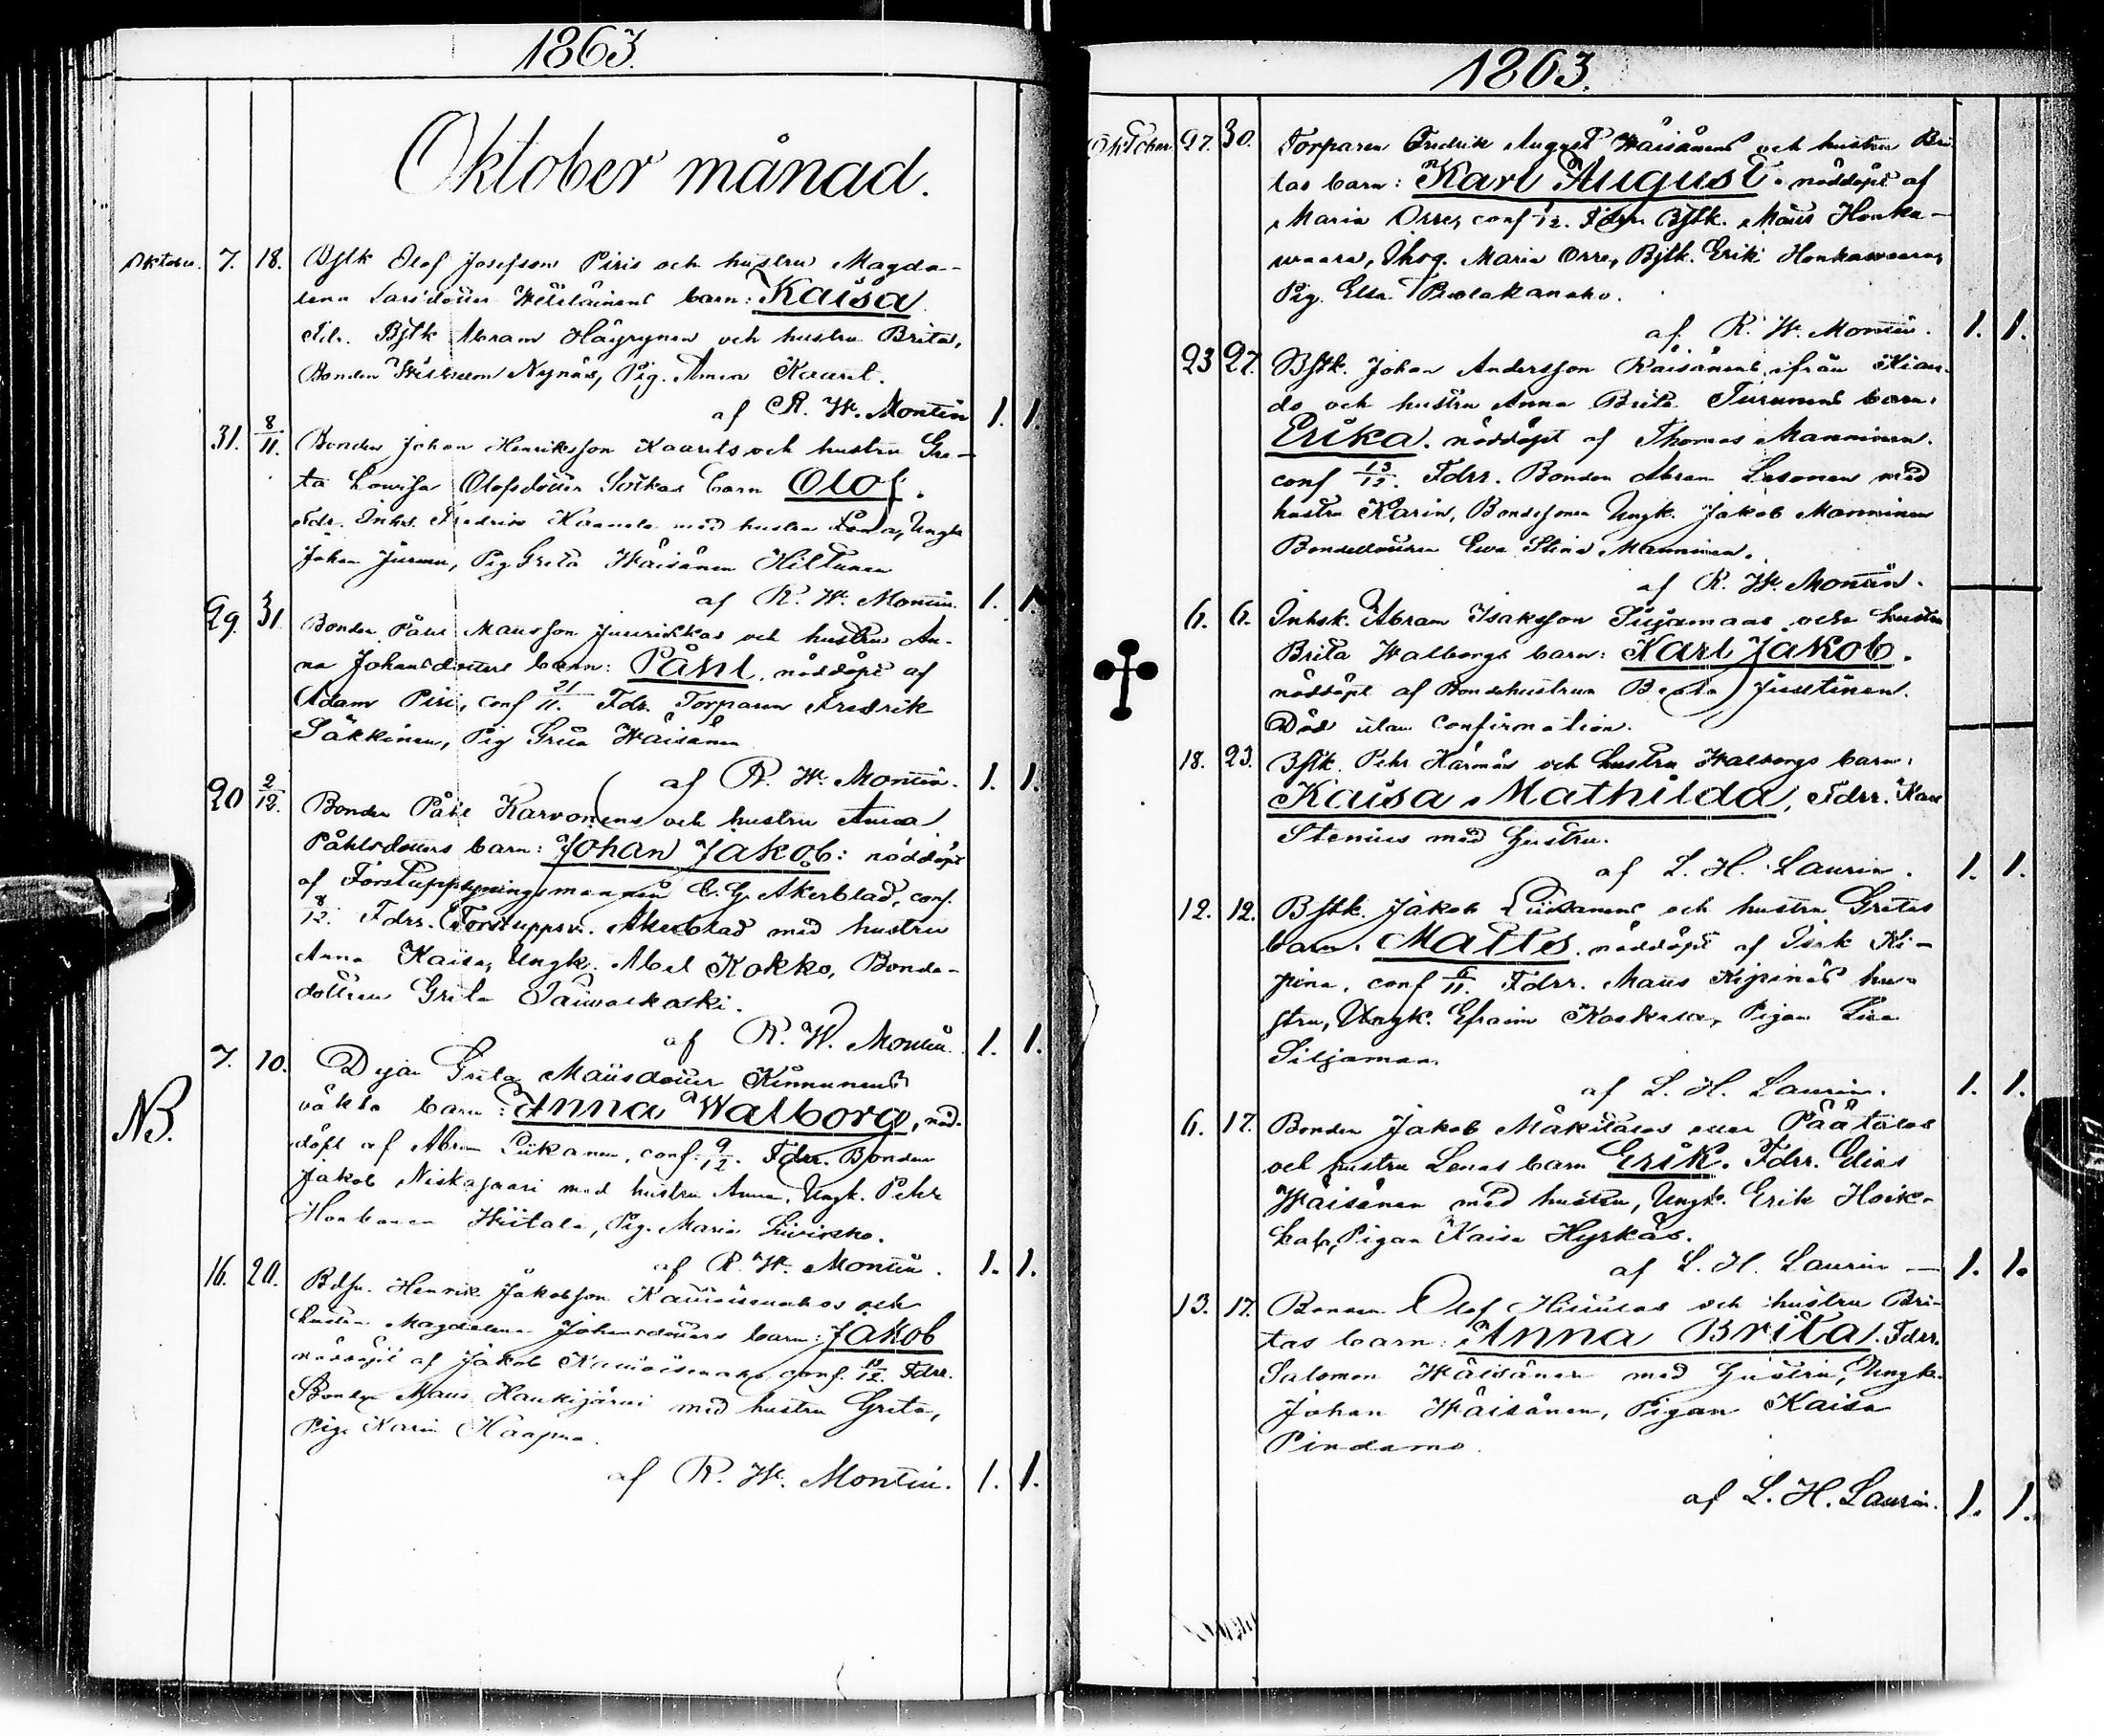 1863.
Oktober månad.
Oktober. 7. 18. Bstk Olof Josefsson Piris och hustru Magda-
lena Larsdotter barn: Kaisa.
Fdr. Bstk Abram Häyrynen och hustru Brita,
Bonden Nynäs, Pig. Anna Kaarel.
af R. W. Montin 1. 1.
31. 8/11. Bonden Johan Henriksson Kaarels och hustru Gre-
ta Lovisa Olofsdotter barn Olof.
Fdr. Inhs. Fredrik med hustru Lena, Ungk
Johan Pig Greta Wäisänen Hiltunen
af R. W. Montin. 1. 1.
29. 31. Bonden Påhl Mansson Juurikkas och hustru An-
na Johansdotters barn: Påhl. nöddöpt af
Adam Piri, conf 21/11. Fdr. Torparen Fredrik
Säkkinen, Pig Greta Wäisänen
af R. W. Montin. 1. 1.
20 2/12. Bonden Påhl Karvonens och hustru Anna
Påhlsdotters barn: Johan Jakob: nöddöpt
af Förstuppsyningsmannen C. G. Åkerblad, conf.
8/12. Fdrr. Forstuppsn. Åkerblad med hustru
Anna Kaisa, Ungk. Abel Kokko, Bonde-
dottren Greta
af R. W. Montin. 1. 1.
NB. 7. 10. Deja Greta Mansdotter Kinnunens
oäkta barn: Anna Walborg, nöd-
döpt af Abram Liikanen, conf. 9/12. Fdrr. Bonden
Jakob Niskajaari med hustru Anna, Ungk. Pehr
Honkanen Wiitala, Pig. Maria
af R. W. Montin. 1. 1.
16. 20. Bdsn. Henrik Jakobsson och
hustru Magdalena Johansdotters barn: Jakob
nöddöpt af Jakob conf. 13/12. Fdrr.
Bonden Mans Haukijärvi med hustru Greta,
Pig. Karin Haapua.
af R. W. Montin. 1. 1.
1863.
Oktober 27. 30. Torparen Fredrik August Wäisänens och hustru Bri-
tas barn: Karl August. nöddöpt af
Maria Orre, conf 1/12. Fdrr Bstk. Mans Honka-
waara, Thog. Maria Orre, Bstk. Erik Honkawaara,
Pig. Elsa Puolakanaho.
af R. W. Montin. 1. 1.
23 27. Bstk. Johan Andersson Räisänens, ifrån Kian-
do och hustru Anna Brita Turunens barn:
Erika. nöddöpt af Thomas Manninen.
conf 13/12. Fdrr. Bonden Abram Lesonen med
hustru Karin, Bondesonen Ungk. Jakob Manninen
Bondedottren Ewa Stina Manninen.
af R. W. Montin.
6. 6. Inhsk. Abram Isaksson Siljamans och hustru
Brita Walborgs barn: Karl Jakob.
nöddöpt af Bondehustrun Beata Juntunen.
Död utan confirmation.
18. 23. Bstk. Pehr Härmäs och hustru Walborgs barn:
Kaisa Mathilda, Fdrr. Karl
Stenius med hustru.
af L. H. Laurin. 1. 1.
12. 12. Bstk. Jakob Liikanens och hustru Gretas
barn. Matts. nöddöpt af Isak Ki-
pina, conf 6/11. Fdrr. Mans Kipinäs hu-
stru, Ungk. Efraim Pigan Lisa
Siljaman.
af L. H. Laurin. 1. 1.
6. 17. Bonden Jakob Mäkitalos eller Päätalos
och hustru Lenas barn Erik. Fdrr. Elias
Wäisänen med hustru, Ungk. Erik Hoik-
ka, Pigan Kaisa Hyrkäs.
af L. H. Laurin 1. 1.
13. 17. Bonden Olof och hustru Bri-
tas barn: Anna Brita. Fdrr.
Salomon Wäisänen med hustru, Ungk.
Johan Wäisänen, Pigan Kaisa
Pindamo.
af L. H. Laurin. 1. 1.